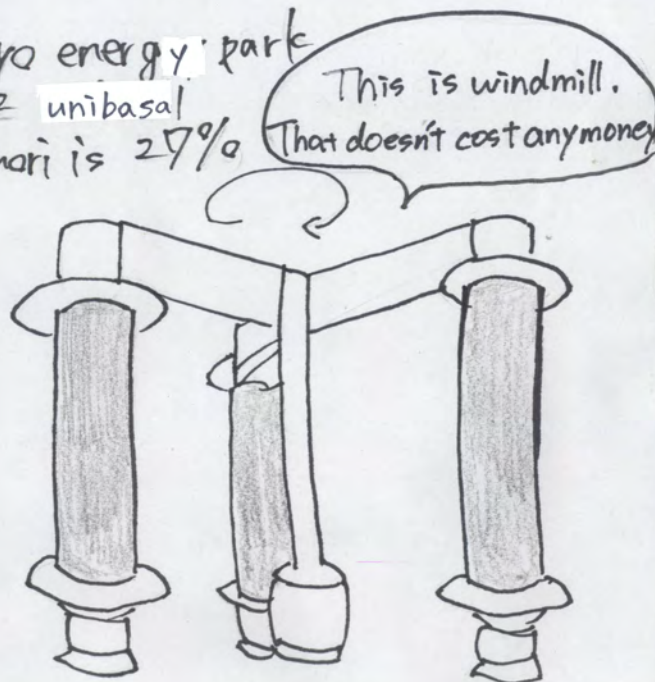 energy park
unibasal
is 27%
This is windmill.
That doesn't cost any money